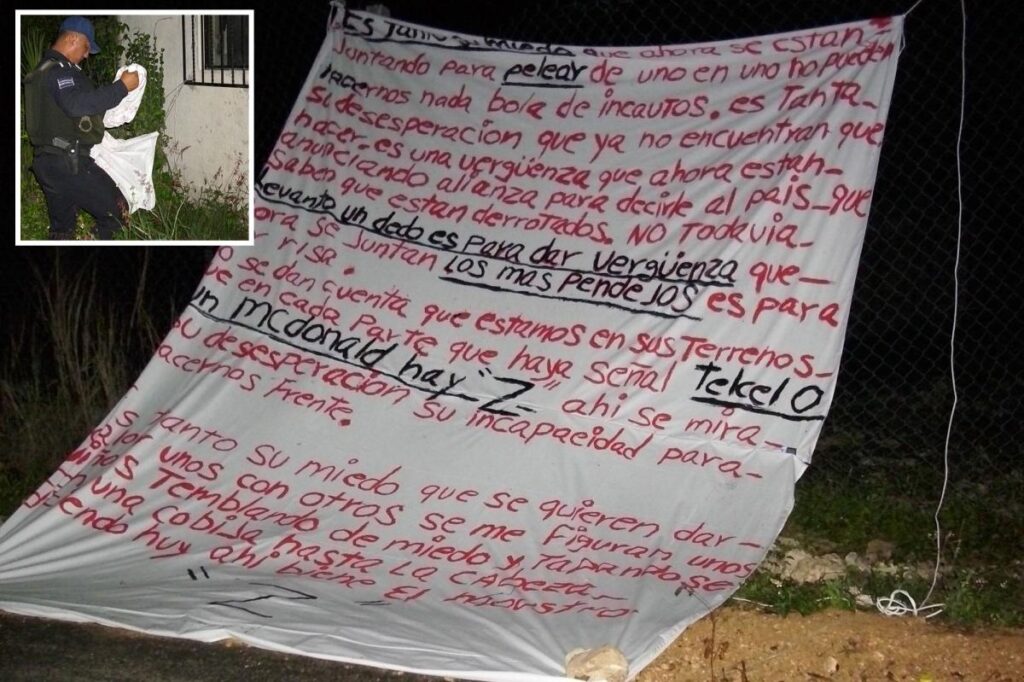 Es Tanto su miedo que ahora se estan-
Juntando para pelear de uno en uno no pueden
hacernos nada bola de incautos. es Tanta-
su desesperacion que ya no encuentran que
hacer. es una vergüenza que ahora estan-
anunciando alianza para decirle al pais que
saben que estan derrotados. NO Todavia-
Levanto un dedo es para dar vergüenza que-
ora se juntan Los mas PendeJos es para
risa.
o se dan cuenta que estamos en sus Terrenos-
ue en cada Parte que haya señal Tekel O
un mcdonald hay "Z" ahi se mira-
su desesperacion su incapacidad para-
acernos Frente.
s Tanto su miedo que se quieren dar-
alor unos con otros se me Figuran unos
niños Temblando de miedo y Tapandose
En una cobija hasta La cabeza-
iciendo huy ahi biene El moustro
"Z"